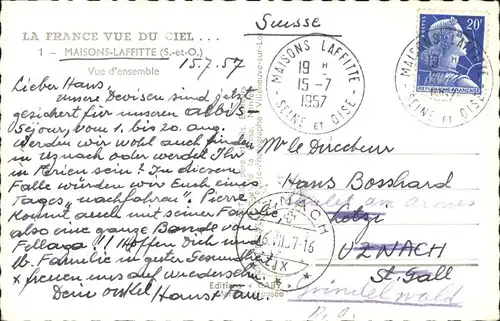 LA FRANCE VUE DU CIEL ...
1 - MAISONS-LAFFITTE (S.-et-O.)
Vue d'ensemble
15.7.57
Lieber Hans,
unsere Devisen sind jetzt
gesichert für unseren albis-
Séjour, vom 1. bis 20. aug.
Werden wir wohl auch Hans
in Uznach oder werdet Ihr
in Ferien sein? In diesem
Falle würden wir Euch eines
Tages "nachfahren". Pierre
kommt auch mit seiner Familie,
also eine ganze Bande von
!! Hoffen Dich und
lb. Familie in guter Gesundheit
+ freuen uns auf wiedersehen
Dein onkel Hans + Fam.
Suisse
MAISONS LAFFITTE
19 H
15-7
1957
SEINE ET OISE
20F
REPUBLIQUE FRANÇAISE
MAISONS LAFFITTE
19 H
15-7
1957
SEINE ET OISE
Mr le Directeur
Hans Bosshard
UZNACH
St. Gall
Grindelwald
B.O.
UZNACH
16.VII.57-16
Editions "GABY"